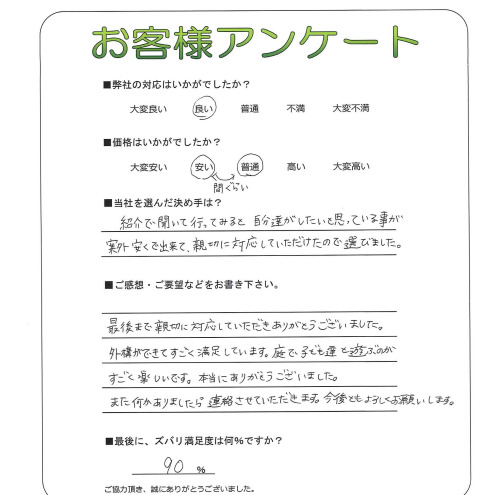 お客様アンケート
■弊社の対応はいかがでしたか？
大変良い 良い 普通 不満 大変不満
■価格はいかがでしたか？
大変安い 安い 普通 高い 大変高い
間ぐらい
■当社を選んだ決め手は？
紹介で聞いて行ってみると自分達がしたいと思っている事が
案外安くで出来て、親切に対応していただけたので選びました。
■ご感想・ご要望などをお書き下さい。
最後まで親切に対応していただきありがとうございました。
外構ができてすごく満足しています。庭で子ども達と遊ぶのが
すごく楽しいです。本当にありがとうございました。
また何かありましたら連絡させていただきます。今後ともよろしくお願いします。
■最後に、ズバリ満足度は何％ですか？
90 %
ご協力頂き、誠にありがとうございました。